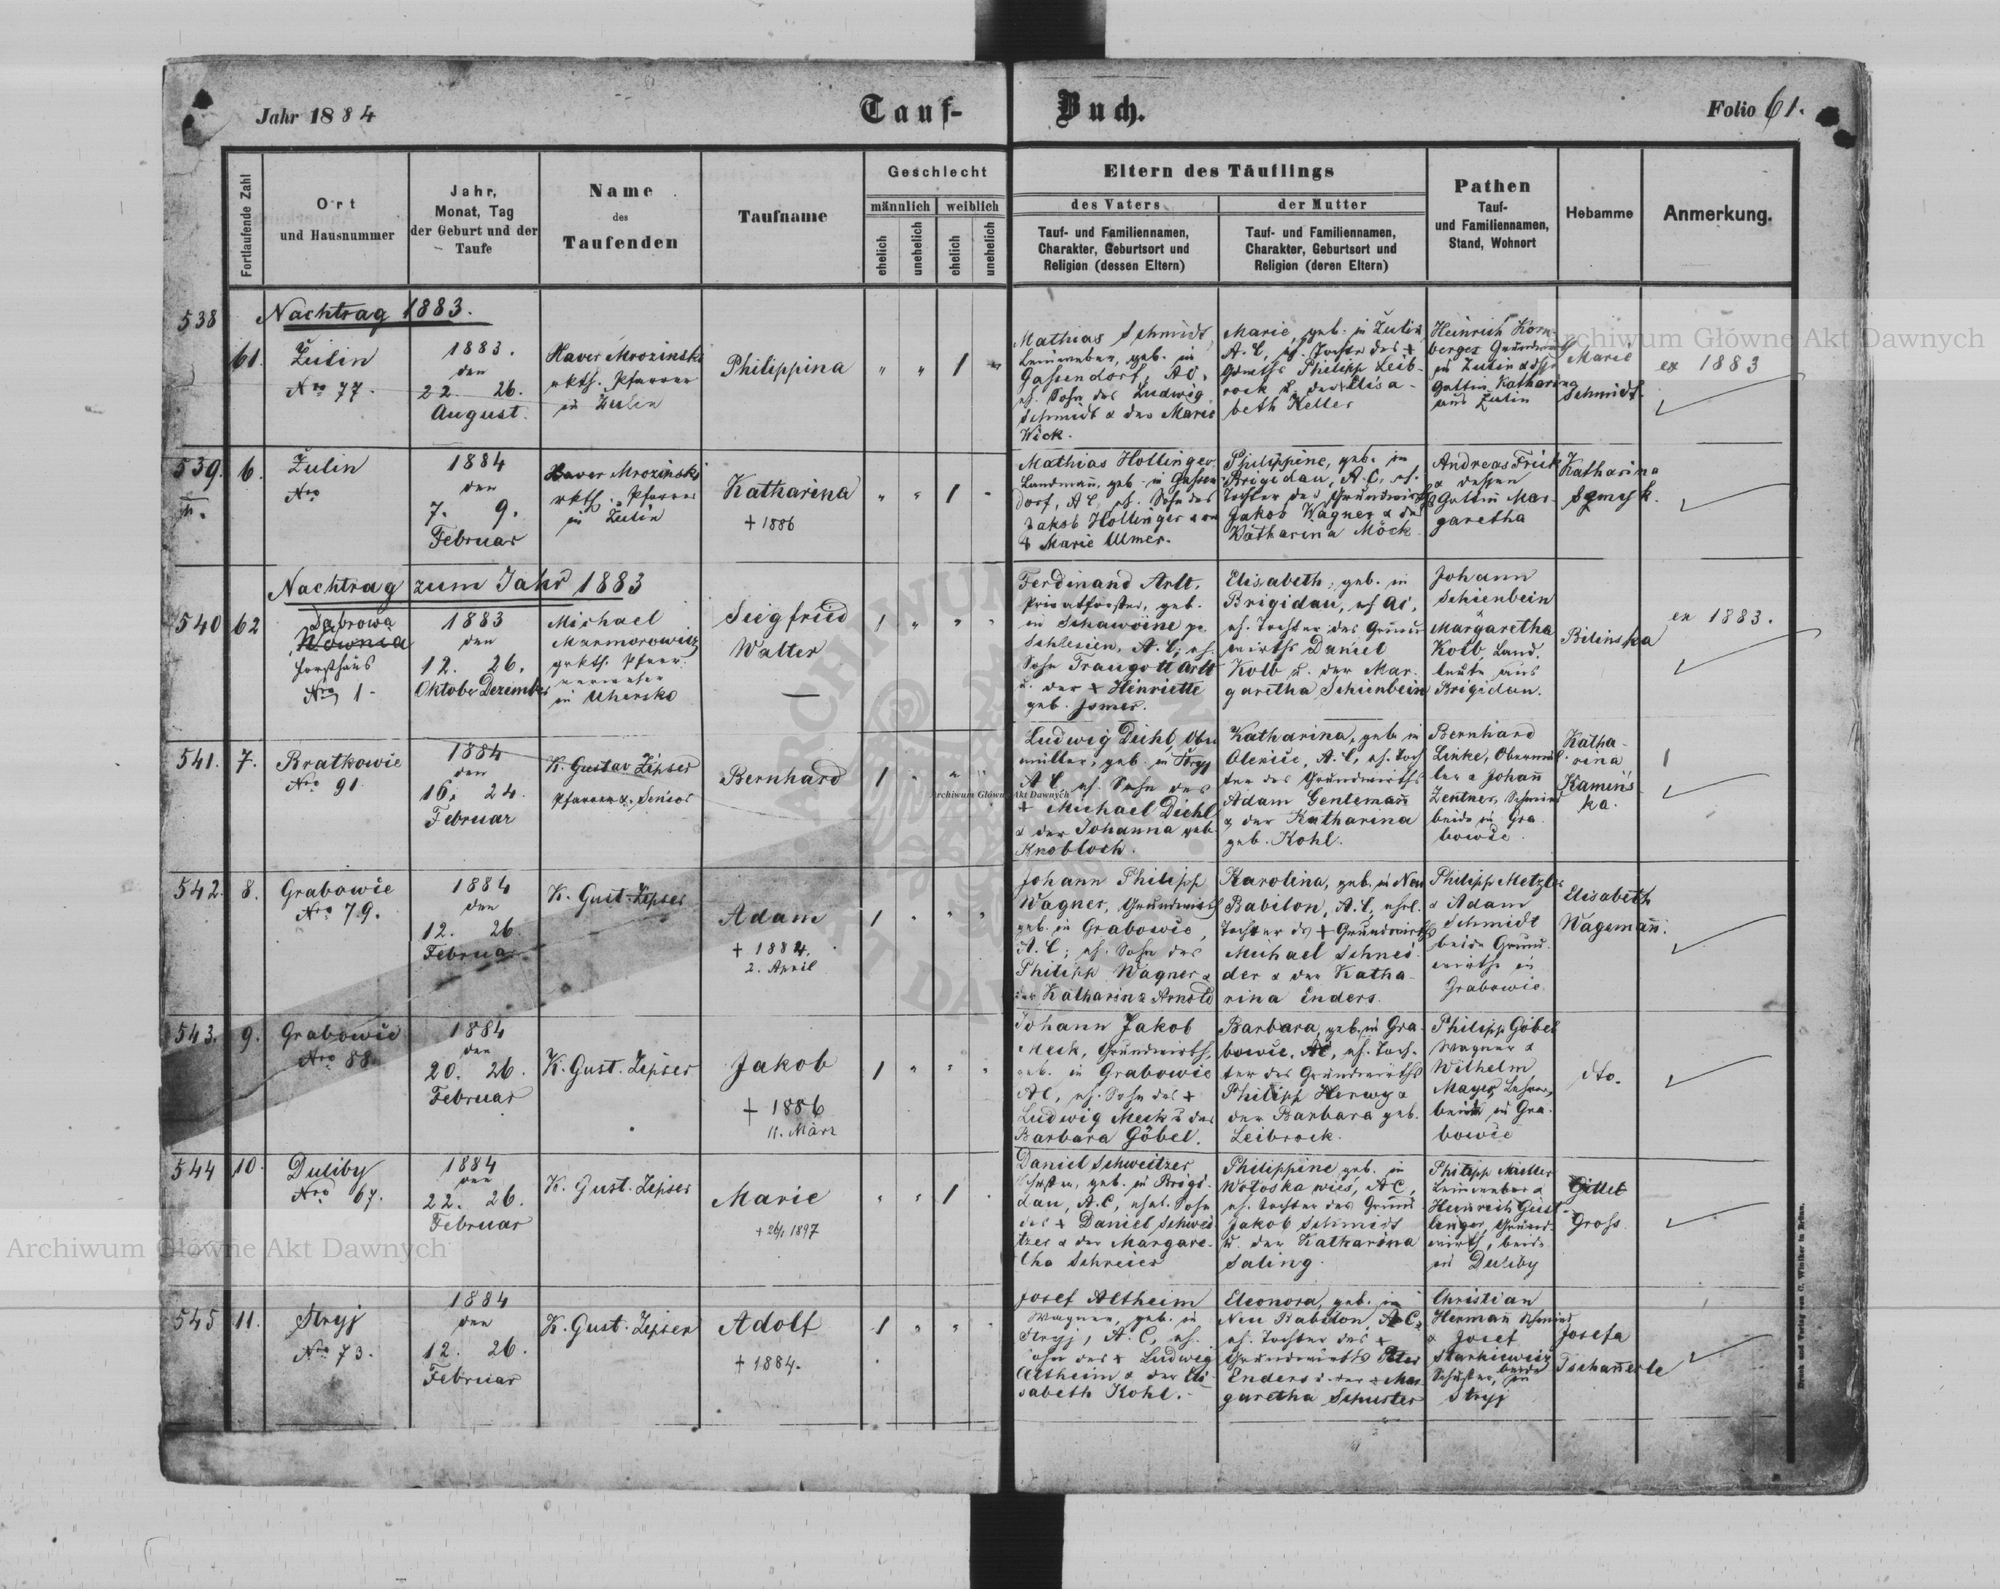 Jahr 1884
Tauf-
Buch.
Folio 61.
Fortlaufende Zahl
Ort
und Hausnummer
Jahr,
Monat, Tag
der Geburt und der
Taufe
Name
des
Taufenden
Taufname
Geschlecht
männlich
weiblich
ehelich
unehelich
ehelich
unehelich
Eltern des Täuflings
des Vaters
der Mutter
Tauf- und Familiennamen,
Charakter, Geburtsort und
Religion (dessen Eltern)
Tauf- und Familiennamen,
Charakter, Geburtsort und
Religion (deren Eltern)
Pathen
Tauf-
und Familiennamen,
Stand, Wohnort
Hebamme
Anmerkung.
538
Nachtrag 1883.
61.
Żulin
Nro 77.
1883.
den
22. 26.
August.
Xaver Mrozinski
rkth. Pfarrer
in Żulin
Philippina
" " 1 "
Mathias Schmidt,
Leinweber, geb. in
Gassendorf, AC,
eh. Sohn des Ludwig
Schmidt & der Marie
Wick.
Marie, geb. in Żulin
A.C, eh. Tochter des +
Philipp Leib-
rock u. der Elisa-
beth Keller
Heinrich Korn-
berger
in Żulin
Gattin Katharina
aus Żulin
Marie
Schmidt.
ex 1883
539.
6.
Żulin
Nro
1884
den
7. 9.
Februar
Xaver Mrozinski
rkth. Pfarrer
in Żulin
Katharina
+ 1886
" " 1 "
Mathias Hollinger,
Landmañ, geb. in Gassen-
dorf, AC, eh. Sohn des
Jakob Hollinger
& Marie Ulmer.
Philippine, geb. in
Brigidau, A.C, eh.
Tochter des Grundwirths
Jakob Wagner & der
Katharina Möck.
Andreas Frick
& dessen
Gattin Mar-
garetha
Katharina
Szmyk.
Nachtrag zum Jahr 1883
540
62
Dąbrowa
Forsthaus
Nro 1.
1883
den
12. 26.
Oktober Dezember
Michael
Marmorowicz
grkth. Pfarr-
verweser
in Uhersko
Siegfried
Walter
1 " " "
Ferdinand Arlt,
Privatförster, geb.
in Schawoine pr.
Schlesien, A.C, eh.
Sohn Traugott Arlt
u. der + Henriette
geb. Jsmer.
Elisabeth, geb. in
Brigidau, AC,
eh. Tochter des Grund-
wirths Daniel
Kolb u. der Mar-
garetha Schienbein
Johann
Schienbein
&
Margaretha
Kolb Land-
leute aus
Brigidau.
Bilinska
ex 1883.
541.
7.
Bratkowie
Nro 91
1884
den
16. 24.
Februar
K. Gustav Zipser
Pfarrer & Senior
Bernhard
1 " " "
Ludwig Diehl, Ober-
müller, geb. in Stryj
A.C, eh. Sohn des
+ Michael Diehl
& der Johanna geb.
Knobloch.
Katharina, geb. in
A.C, eh. Toch-
ter des Grundwirths
Adam Gentemañ
& der Katharina
geb. Kohl.
Bernhard
Linke, Obermül-
ler & Johañ
Zentner, Schmied
beide in Gra-
bowie.
Katha-
rina
Kamińs-
ka.
542.
8.
Grabowie
Nro 79.
1884
den
12. 26.
Februar
K. Gust. Zipser
Adam
+ 1884.
2. April
1 " " "
Johann Philipp
Wagner, Grundwirth
geb. in Grabowie,
A.C; eh. Sohn des
Philipp Wagner &
der Katharina Arnold
Karolina, geb. in Neu
Babilon, A.C, ehel.
Tochter des + Grundwirths
Michael Schnei-
der & der Katha-
rina Enders.
Philipp Metzler
& Adam
Schmidt
beide Grund-
wirthe in
Grabowie.
Elisabeth
Wagemañ.
543.
9.
Grabowie
Nro 88.
1884
den
20. 26.
Februar
K. Gust. Zipser
Jakob
+ 1886
11. März
1 " " "
Johann Jakob
Meck, Grundwirth,
geb. in Grabowie
AC, eh. Sohn des +
Ludwig Meck u der
Barbara Göbel.
Barbara, geb. in Gra-
bowie, AC, eh. Toch-
ter des Grundwirths
Philipp Herwy &
der Barbara geb.
Leibrock.
Philipp Göbel
Wagner &
Wilhelm
Mayer, Lehrer,
beide in Gra-
bowie
dto.
544
10.
Duliby
Nro 67.
1884
den
22. 26.
Februar
K. Gust. Zipser
Marie
1897
" " 1 "
Daniel Schweitzer
geb. in Brigi-
dau, A.C, ehel. Sohn
des + Daniel Schwei-
tzer & der Margare-
tha Schreier
Philippine geb. in
AC,
eh. Tochter des Grund-
Jakob Schmidt
u. der Katharina
Saling.
Philipp Müller
Leinweber &
Heinrich
Grund-
wirth, beide
in Duliby
Gross.
545
11.
Stryj
Nro 73.
1884
den
12. 26.
Februar
K. Gust. Zipser
Adolf
+ 1884.
1 " " "
Josef Altheim
Wagner, geb. in
Stryj, A.C, eh.
Sohn des + Ludwig
Altheim & der Eli-
sabeth Kohl.
Eleonora, geb. in
Neu Babilon, A.C,
eh. Tochter des +
Grundwirths Peter
Enders & der Mar-
garetha Schuster
Christian
Herman Schmied
& Josef
Starkiewicz
Schuster, beide in
Stryj
Josefa
Tschañerle
Druck und Verlag von C. Winiker in Brünn.
Archiwum Główne Akt Dawnych
Archiwum Główne Akt Dawnych
Archiwum Główne Akt Dawnych